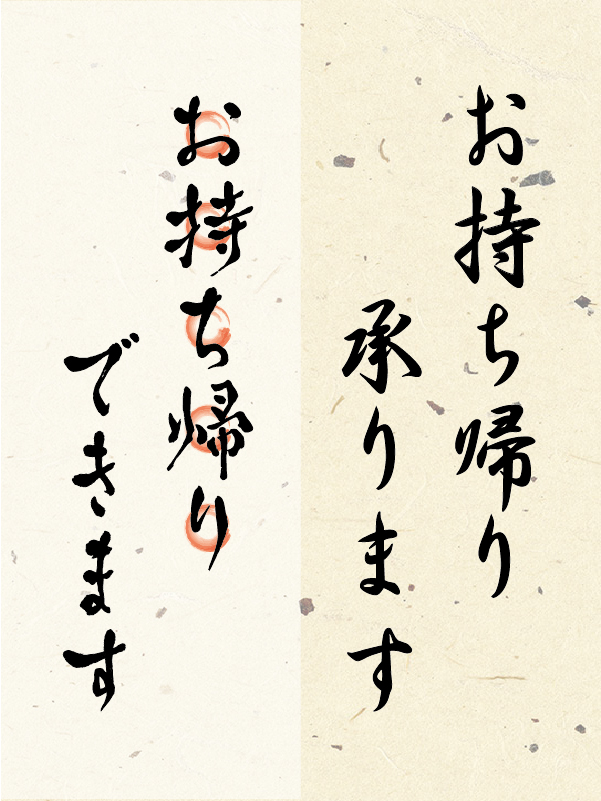 お持ち帰り
承ります
お持ち帰り
できます